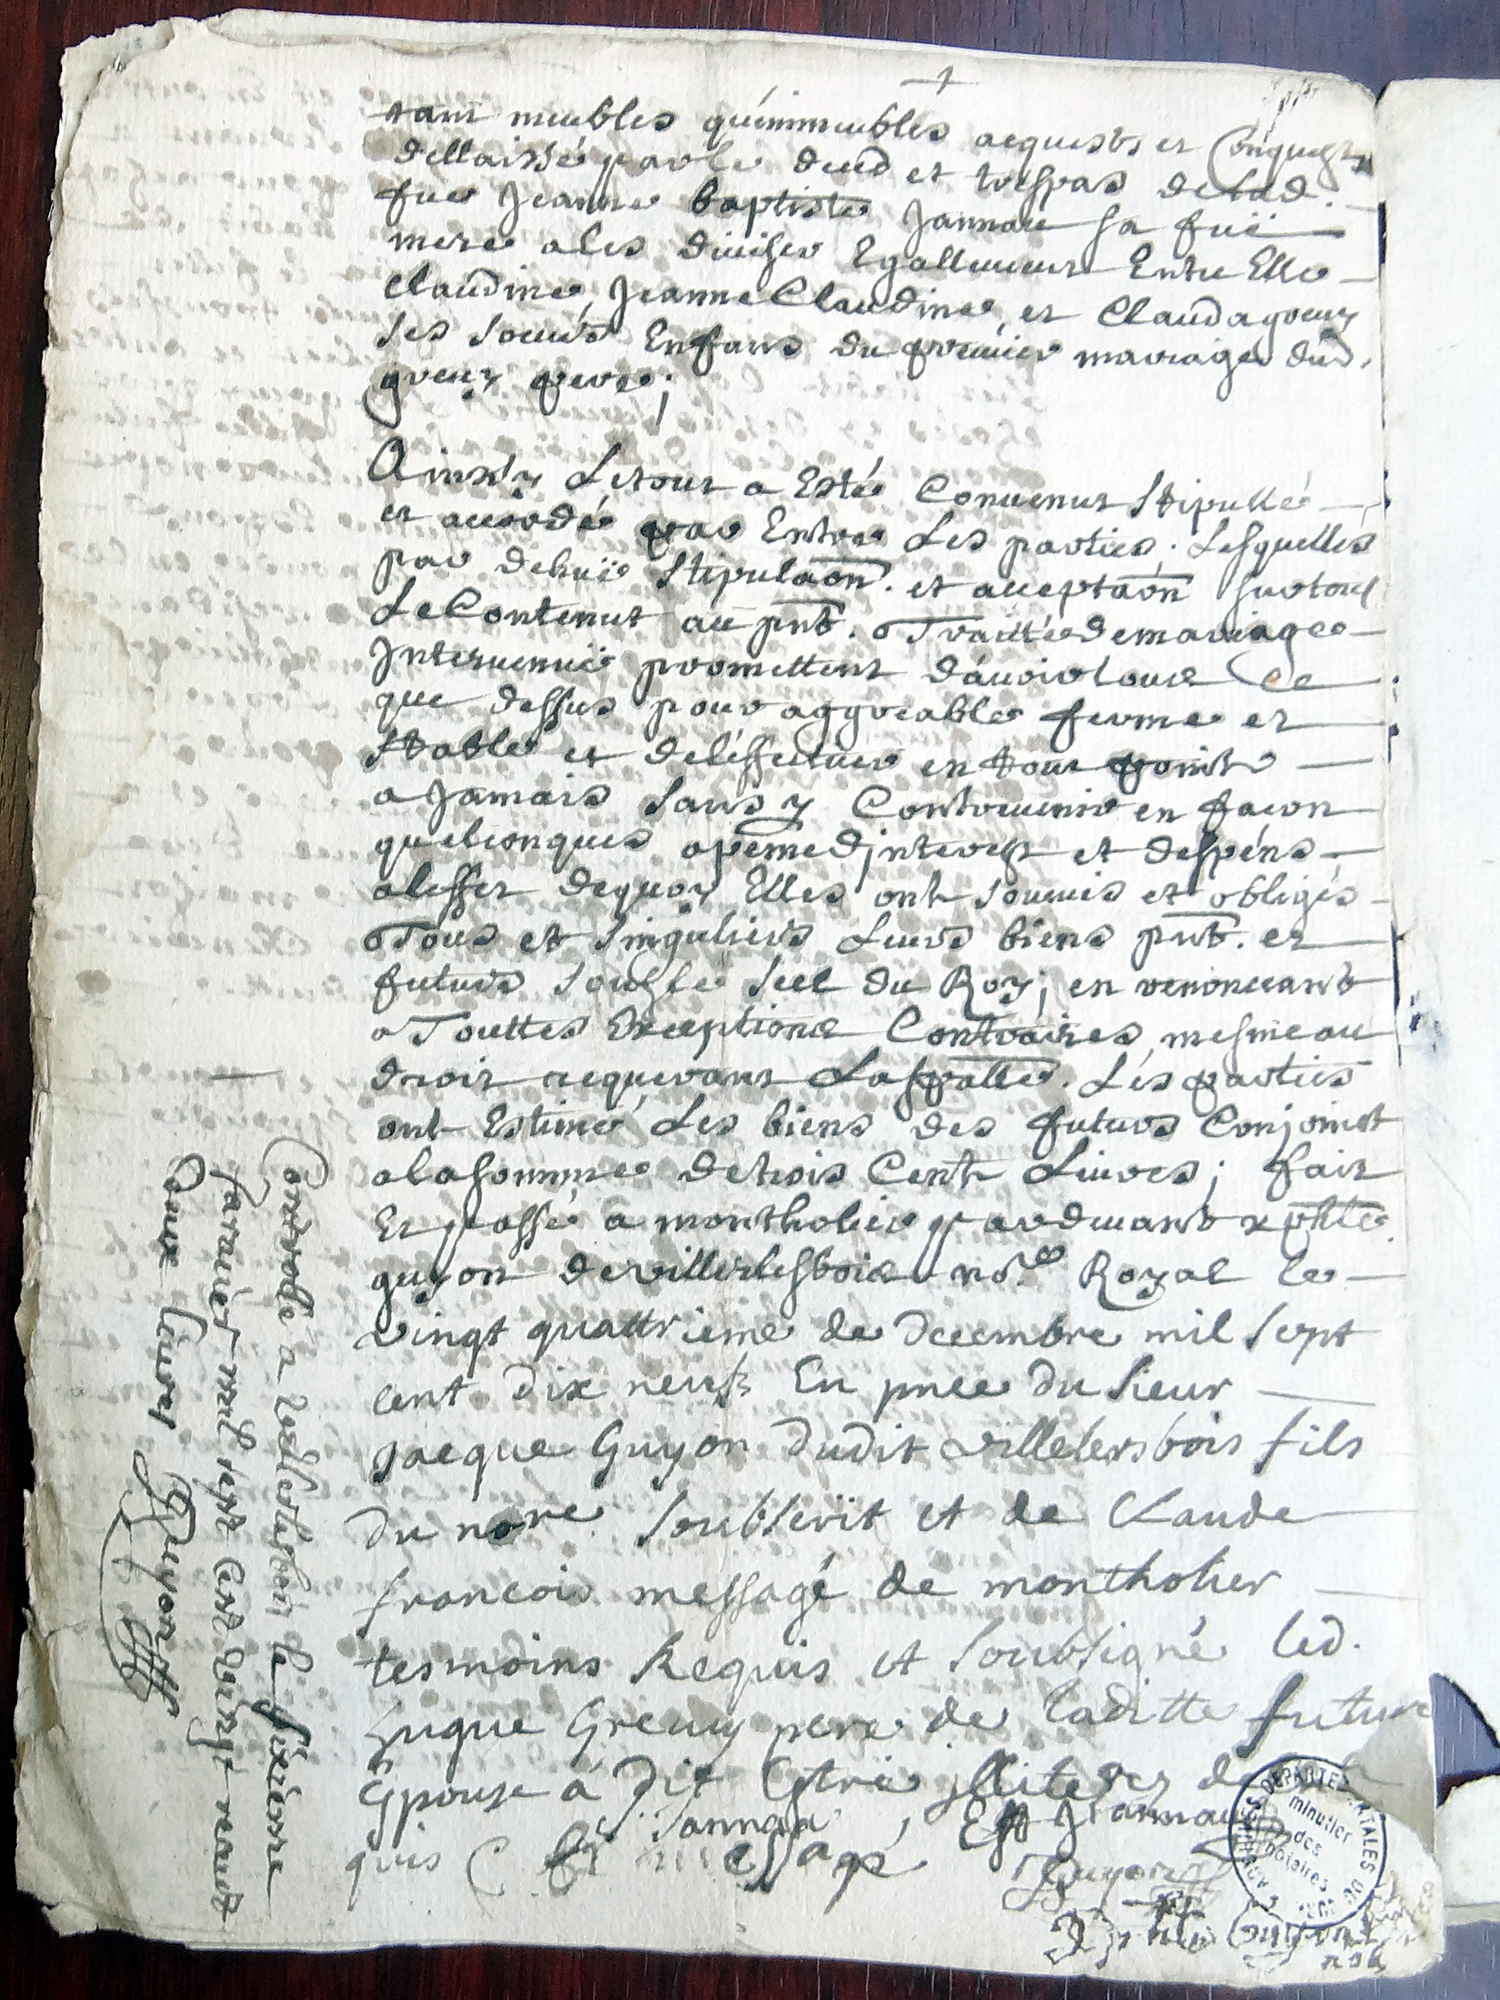 tant meubles qu'immeubles acquests et Conquests
dellaissé par le deced et trespas de lad.
fue Jeanne baptiste Jannau sa fuë
mere a les diuiser Egallement Entre Elle
Claudine, Jeanne Claudine, et Clauda greuy
ses soeurs Enfans du premier mariage dud.
greuy pere;
Ainsy Letout a Esté Conuenut Stipullé
et accordé par Entre Les parties. Lesquelles
par dehuë Stipulaōn. et acceptaōn sur tout
Le Contenut au pnt. Traitté de mariage
Interuenuë promettent d'auoir tout Ce
que dessus pour aggreable ferme et
Stable et de l'effectuer en tout point
a Jamais sans y Contreuenir en facon
quelconques a peine d'jnterest et despens
a l'effet dequoy Elles ont soumis et obliges
Tous et singuliers Leurs biens pnt. et
futurs soubs le seel du Roy; en renonceant
a Touttes Exceptions Contraires, mesme au
droit requerant La spālle. Les parties
ont Estimé Les biens des futurs Conjoint
a la somme de trois Cent Liures; fait
Et passé a montholier par deuant
guyon de villerlesbois no.re Royal le
vingt quattrieme de decembre mil sept
cent dix neufs En pnce du sieur
jacque Guyon dudit villelersbois fils
du nore. soubserit et de Claude
francois messagé de montholier
tesmoins Requis et soubsigné led.
huque Greuuy pere de laditte future
Epouse á dit Estre jlliteres de
quis C f messagé Jannaa E Jannau
Guyon
Controllé a villerlesbois le sixieme
januier mil sept cent vingt receut
deux liures Guyon
ARCHIVES DÉPARTEMENTALES DU JURA
minutier
des
notaires